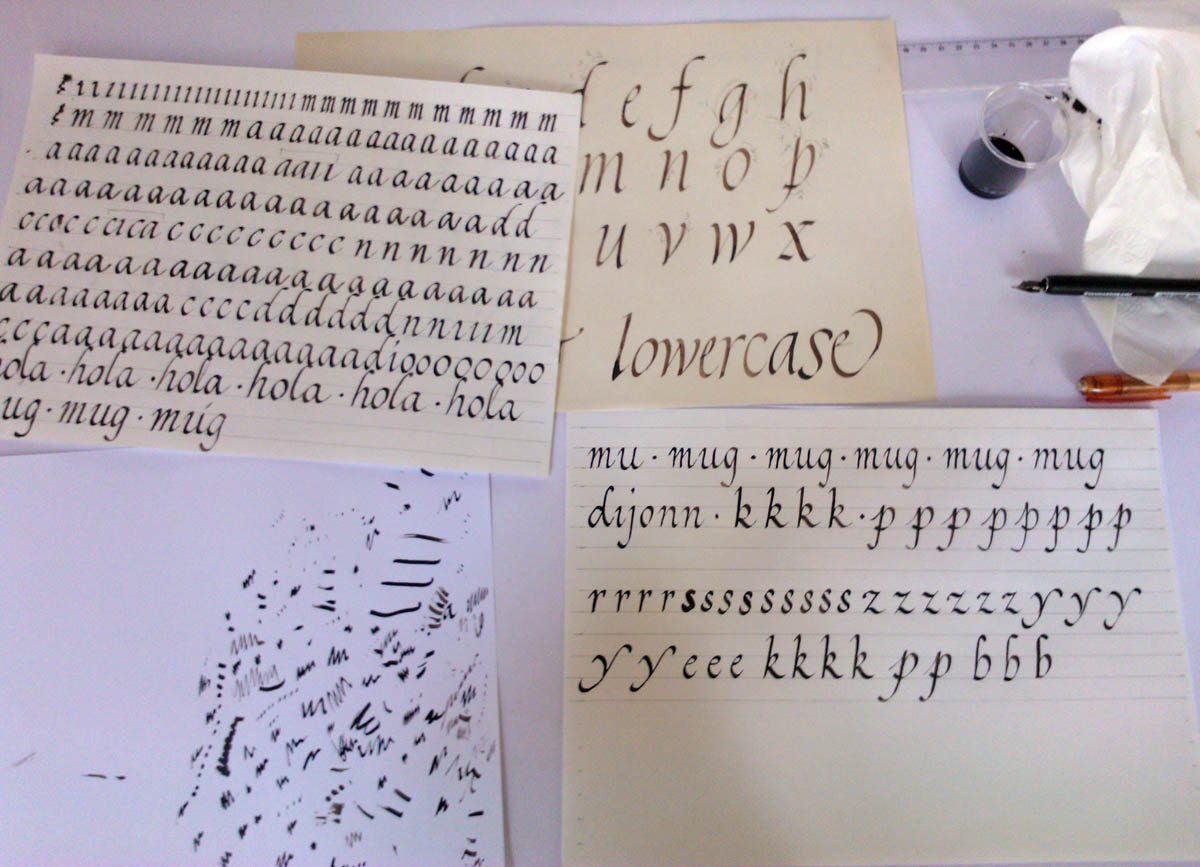 ııııııııııııııııııımmmmmmmmmmm
mmmmmmmaaaaaaaaaaaaaaa
aaaaaaaaaaaa aaıı aaaaaaaaa
aaaaaaaaaaaaaaaaaaaadd
ccocc cıca ccccccccc nnnnnnn
aaaaaaaaaaaaaaaaaaaa
aaaaaaaaccccddddddnnıım
cccaaaaaaaaaaaaaaadioooooooo
hola · hola · hola · hola · hola · hola
ug · mug · mug
d e f g h
m n o p
u v w x
lowercase
mu · mug · mug · mug · mug · mug
dijonn · kkkk · pppppppp
rrrrssssssssszzzzzzyyy
yyeee kkkk pp bbb